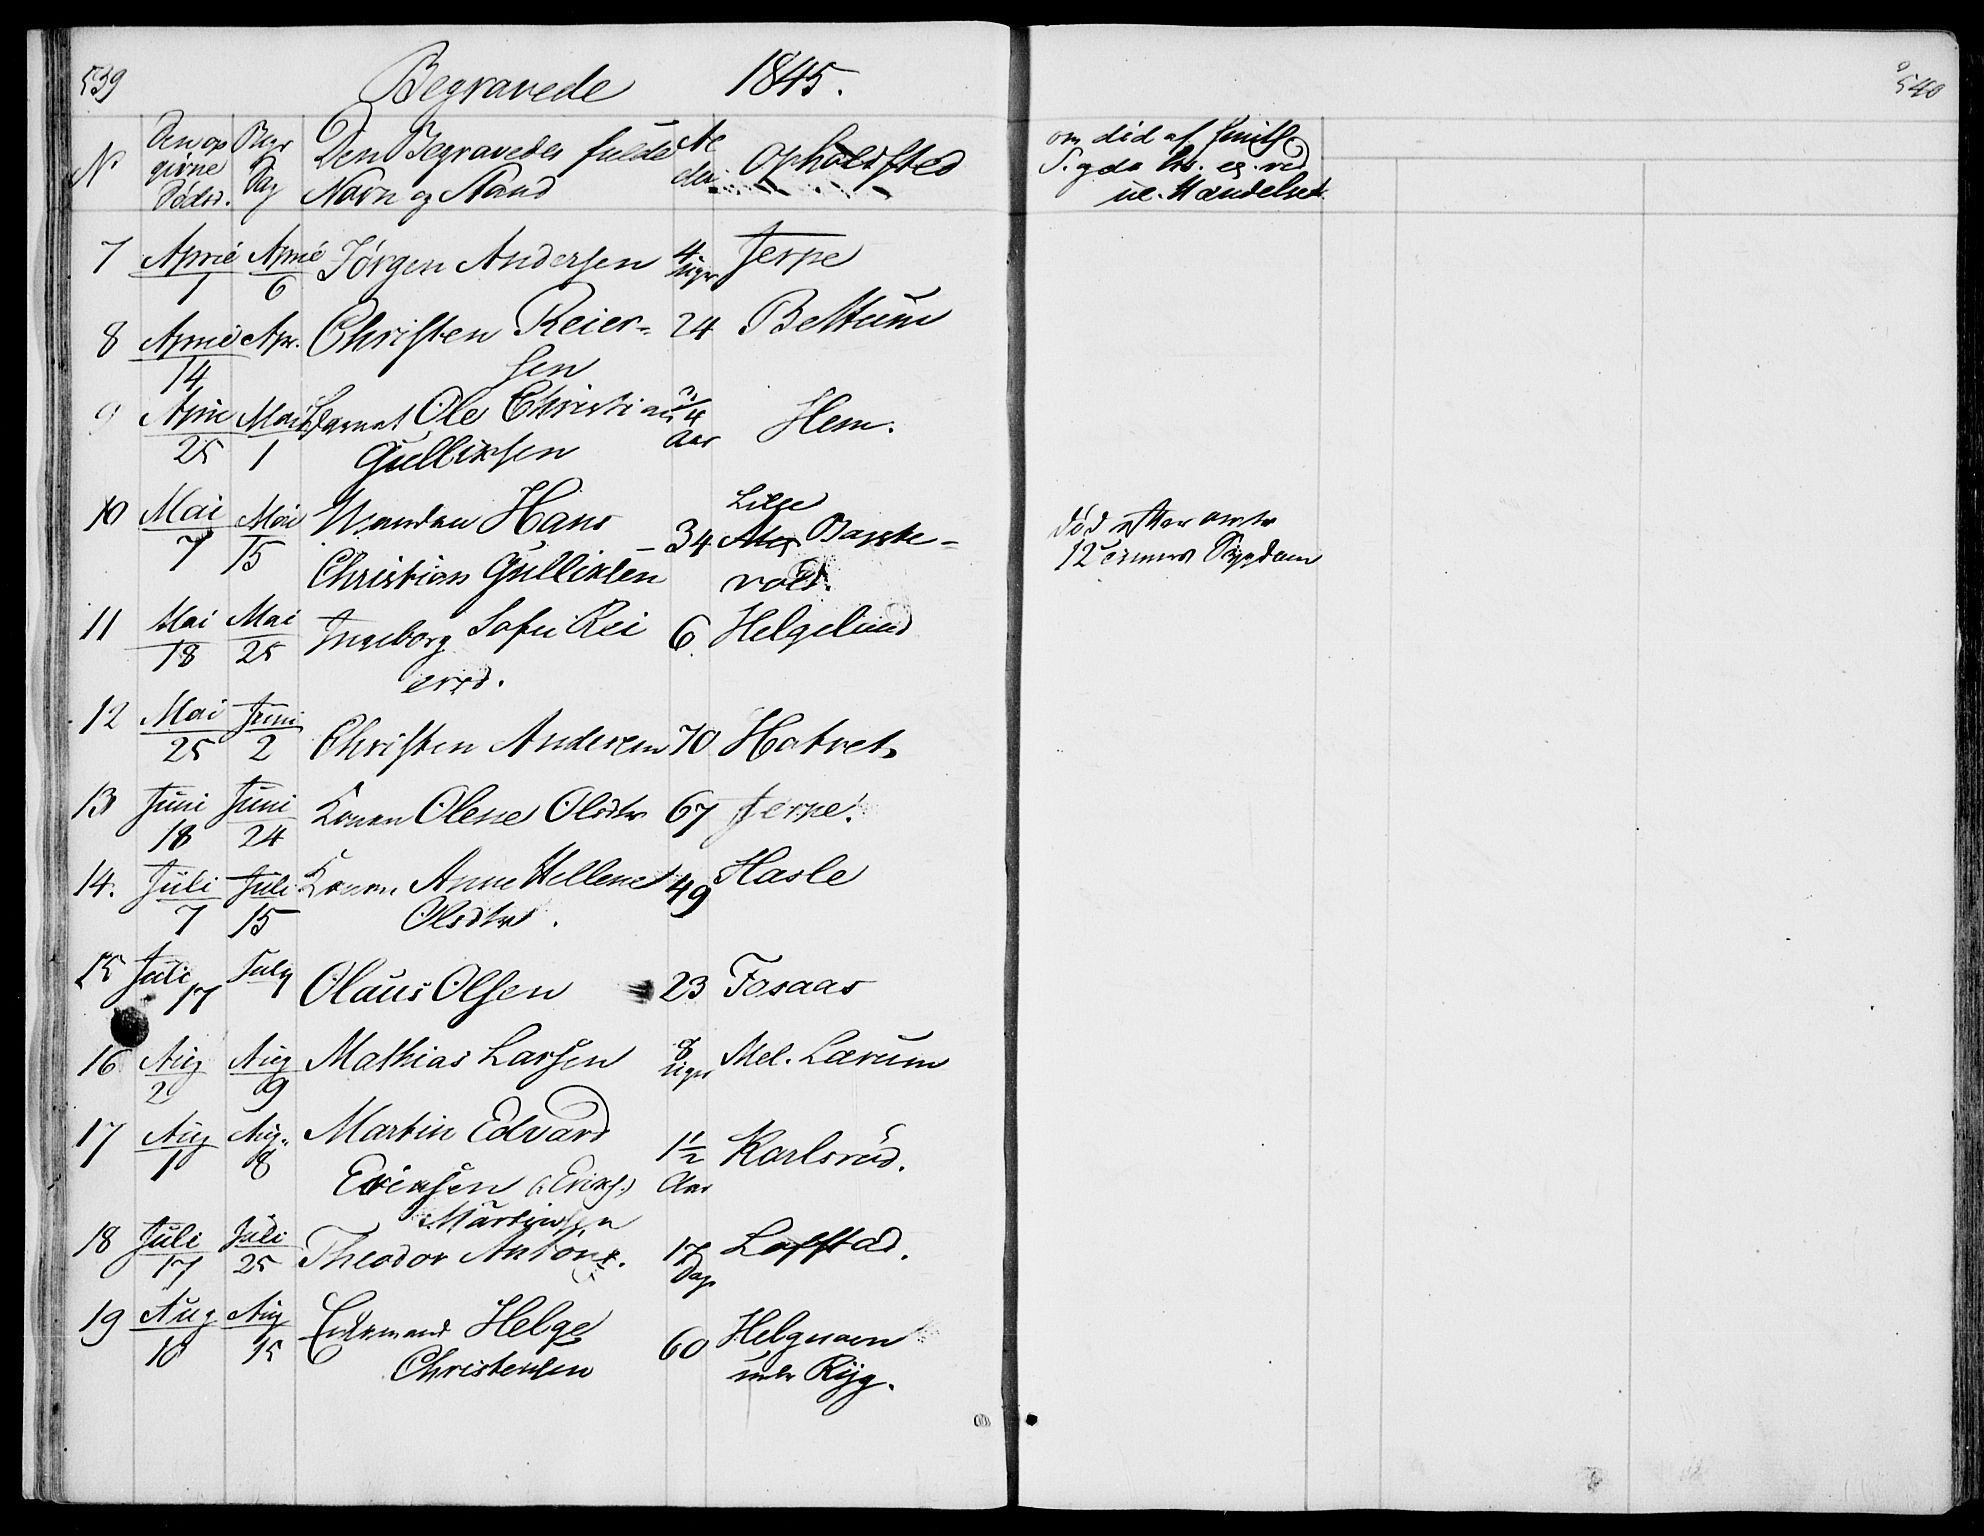 539 Begravede 1845.
No Den op Begr Den Begravedes fulde Al Opholdssted
givne Dag Navn og Stand der
Dødsd.
7 April 1 April 6 Jørgen Andersen 4 Uger Jerpe
8 April 14 Apr. Christen Reier-
sen 24 Bettum
9 April 25 Mai 1 Barnet Ole Christian
Gulliksen 3/4 Aar Hem.
10 Mai 7 Mai 15 Manden Hans
Christian Gulliksen 34 Lille
Barke-
vold.
11 Mai 18 Mai 25 Ingeborg Sofie Rei
ersd. 6 Helgeland
12 Mai 25 Juni 2 Christen Andersen 70 Hotvet
13 Juni 18 Juni 24 Konen Olene Olsdtr 67 Jerpe.
14. Juli 7 Juli 15 Konen Anne Hellene
Olsdtr. 49 Hasle
15 Juli 17 July Olaus Olsen 23 Fosaas
16 Aug 2 Aug 9 Mathias Larsen 8 Uger Mel. Lærum
17 Aug 1 Aug. 8 Martin Edvard
Eriksen 1 1/2 Aar Karlsrud.
Martinsen
18 Juli 17 Juli 25 Theodor Anton. 17 Dage Loffstad.
19 Aug 10 Aug 15 Enkemand Helge
Christensen 60
Ryg.
540
om død af
Hændelser
død efter
12 Sygdom